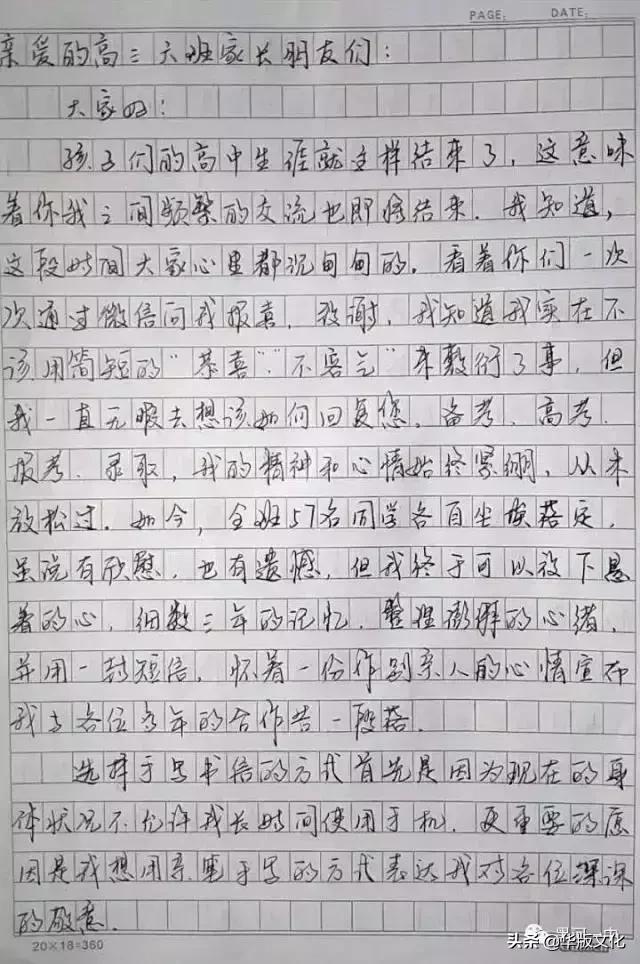 PAGE: DATE:
亲爱的高三六班家长朋友们:
大家好:
孩子们的高中生涯就这样结束了,这意味
着你我之间频繁的交流也即将结束.我知道,
这段时间大家心里都沉甸甸的.看着你们一次
次通过微信向我报喜、致谢,我知道我实在不
该用简短的“恭喜”“不客气”来敷衍了事,但
我一直无暇去想该如何回复您.备考、高考、
报考、录取,我的精神和心情始终紧绷,从未
放松过.如今,全班57名同学各自尘埃落定,
虽说有欣慰,也有遗憾,但我终于可以放下悬
着的心,细数三年的记忆,整理澎湃的心绪,
并用一封短信,怀着一份作别亲人的心情宣布
我与各位多年的合作告一段落.
选择手写书信的方式首先是因为现在的身
体状况不允许我长时间使用手机.更重要的原
因是我想用亲笔手写的方式表达我对各位深深
的敬意.
20×18=360
头条@华版文化